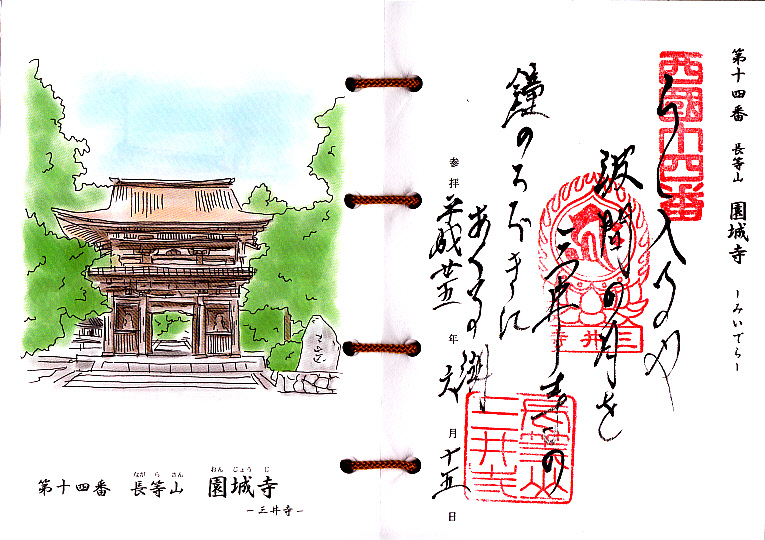 第十四番 長等山 園城寺
ながらさん おんじょうじ
－三井寺－
第十四番 長等山 園城寺 －みいでら－
西國十四番
いで入るや
波間の月を
三井寺の
鐘のひびきに
あくる
湖
三井寺
長等山
三井寺
参拝 平成廿五年六月十五日